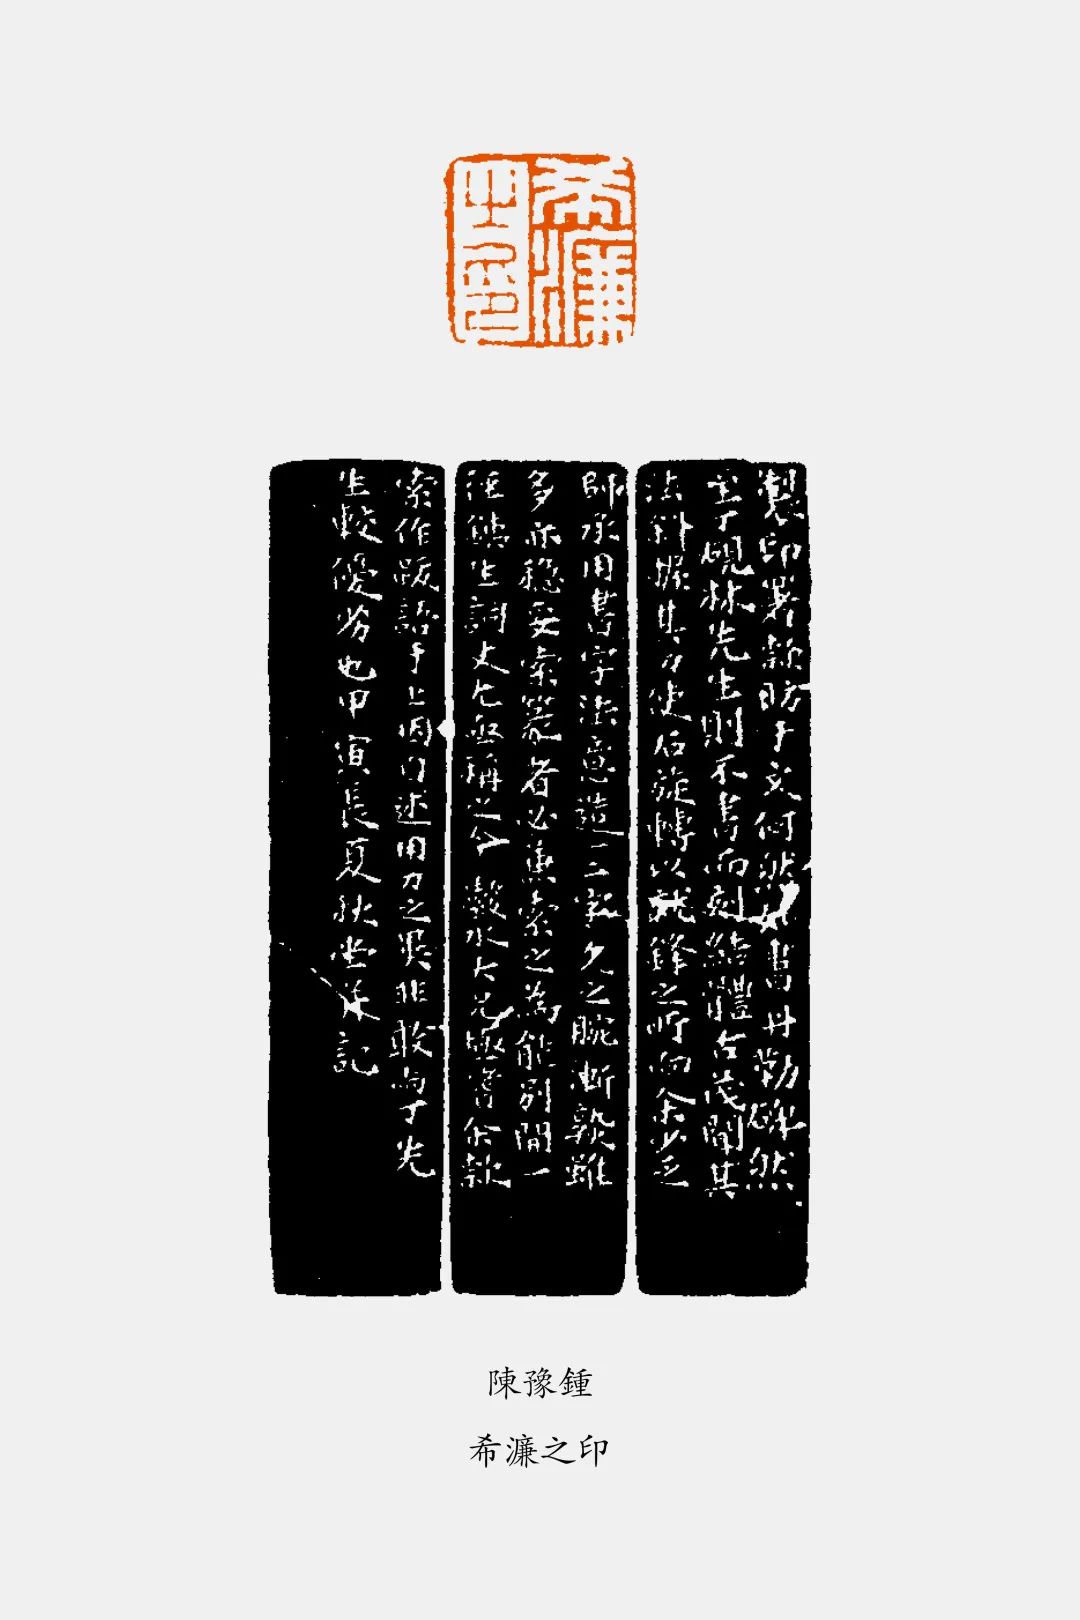 希濂
之印
製印署款昉于文何然如書丹勒碑然
至丁硯林先生則不書而刻結體古茂聞其
法斜握其刀使石旋轉以就鋒之所向余少乏
師承用書字法意造一二字久之腕漸熟雖
多亦穩妥索篆者必兼索之為能別開一
徑鐵生詞丈尤亟稱之今 穀水大兄極賞余款
索作跋語于上因自述用刀之異非敢與丁先
生較優劣也甲寅長夏秋堂并記
陳豫鍾
希濂之印